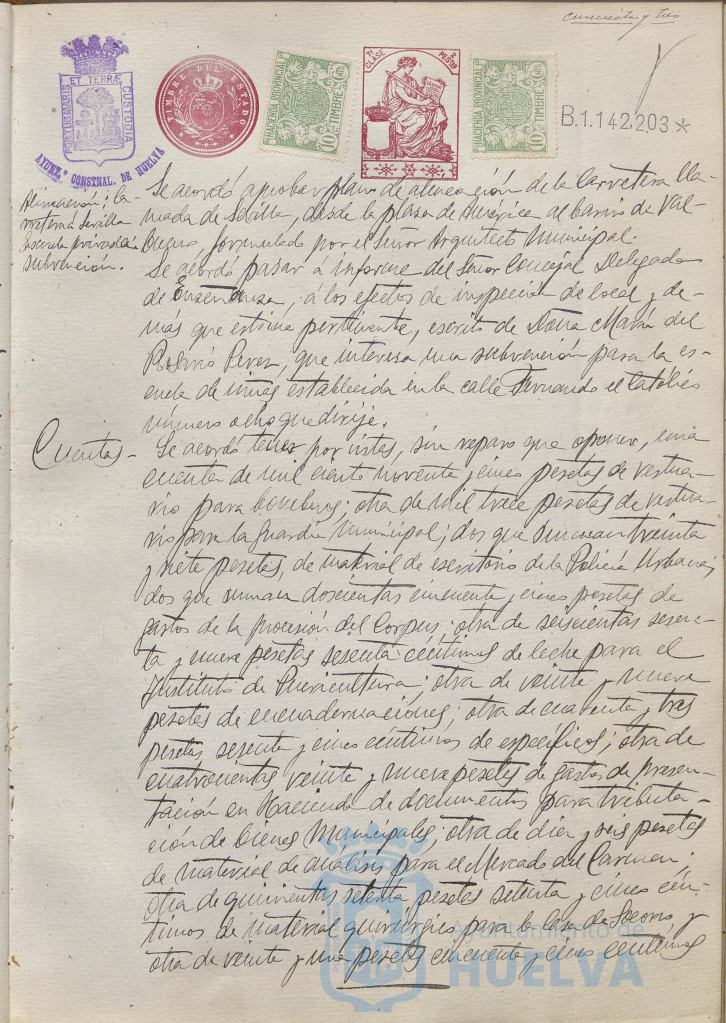 cincuenta y tres
ET TERRÆ
CUSTODIA
AYUNTº CONSTNAL. DE HUELVA
TIMBRE DEL ESTADO
HACIENDA PROVINCIAL
TIMBRE
10
7ª CLASE
2 PESETAS
HACIENDA PROVINCIAL
TIMBRE
10
B.1.142.203*
Alineación; ca-
rretera Sevilla
Escuela privada
subvención.
Se acordó aprobar plano de alineación de la Carretera lla-
mada de Sevilla, desde la plaza de América al barrio de Val-
buena, formulado por el Señor Arquitecto Municipal.
Se acordó pasar á informe del Señor Concejal Delegado
de Enseñanza, á los efectos de inspección de local y de-
más que estime pertinente, escrito de Doña María del
Rosario Perez, que interesa una subvención para la es-
cuela de niñas establecida en la calle Fernando el Católico
número ocho que dirije.
Cuentas-
Se acordó tener por vistas, sin reparo que oponer, una
cuenta de mil ciento noventa y cinco pesetas de vestua-
rio para bomberos; otra de mil trece pesetas de vestua-
rio para la Guardia Municipal; dos que suman treinta
y siete pesetas, de material de escritorio de la Policía Urbana;
dos que suman doscientas cincuenta y cinco pesetas de
gastos de la procesión del Corpus; otra de seiscientas sesen-
ta y nueve pesetas sesenta céntimos de leche para el
Instituto de Puericultura; otra de veinte y nueve
pesetas de encuadernaciones; otra de cuarenta y tres
pesetas sesenta y cinco céntimos de específicos; otra de
cuatrocientas veinte y nueve pesetas de gastos de presen-
tación en Hacienda de documentos para tributa-
ción de bienes Municipales; otra de diez y seis pesetas
de material de análisis para el Mercado del Carmen;
otra de quinientas setenta pesetas setenta y cinco cén-
timos de material quirúrgico para la Casa de Socorro y
otra de veinte y una pesetas cincuenta y cinco céntimos
Ayuntamiento de
HUELVA